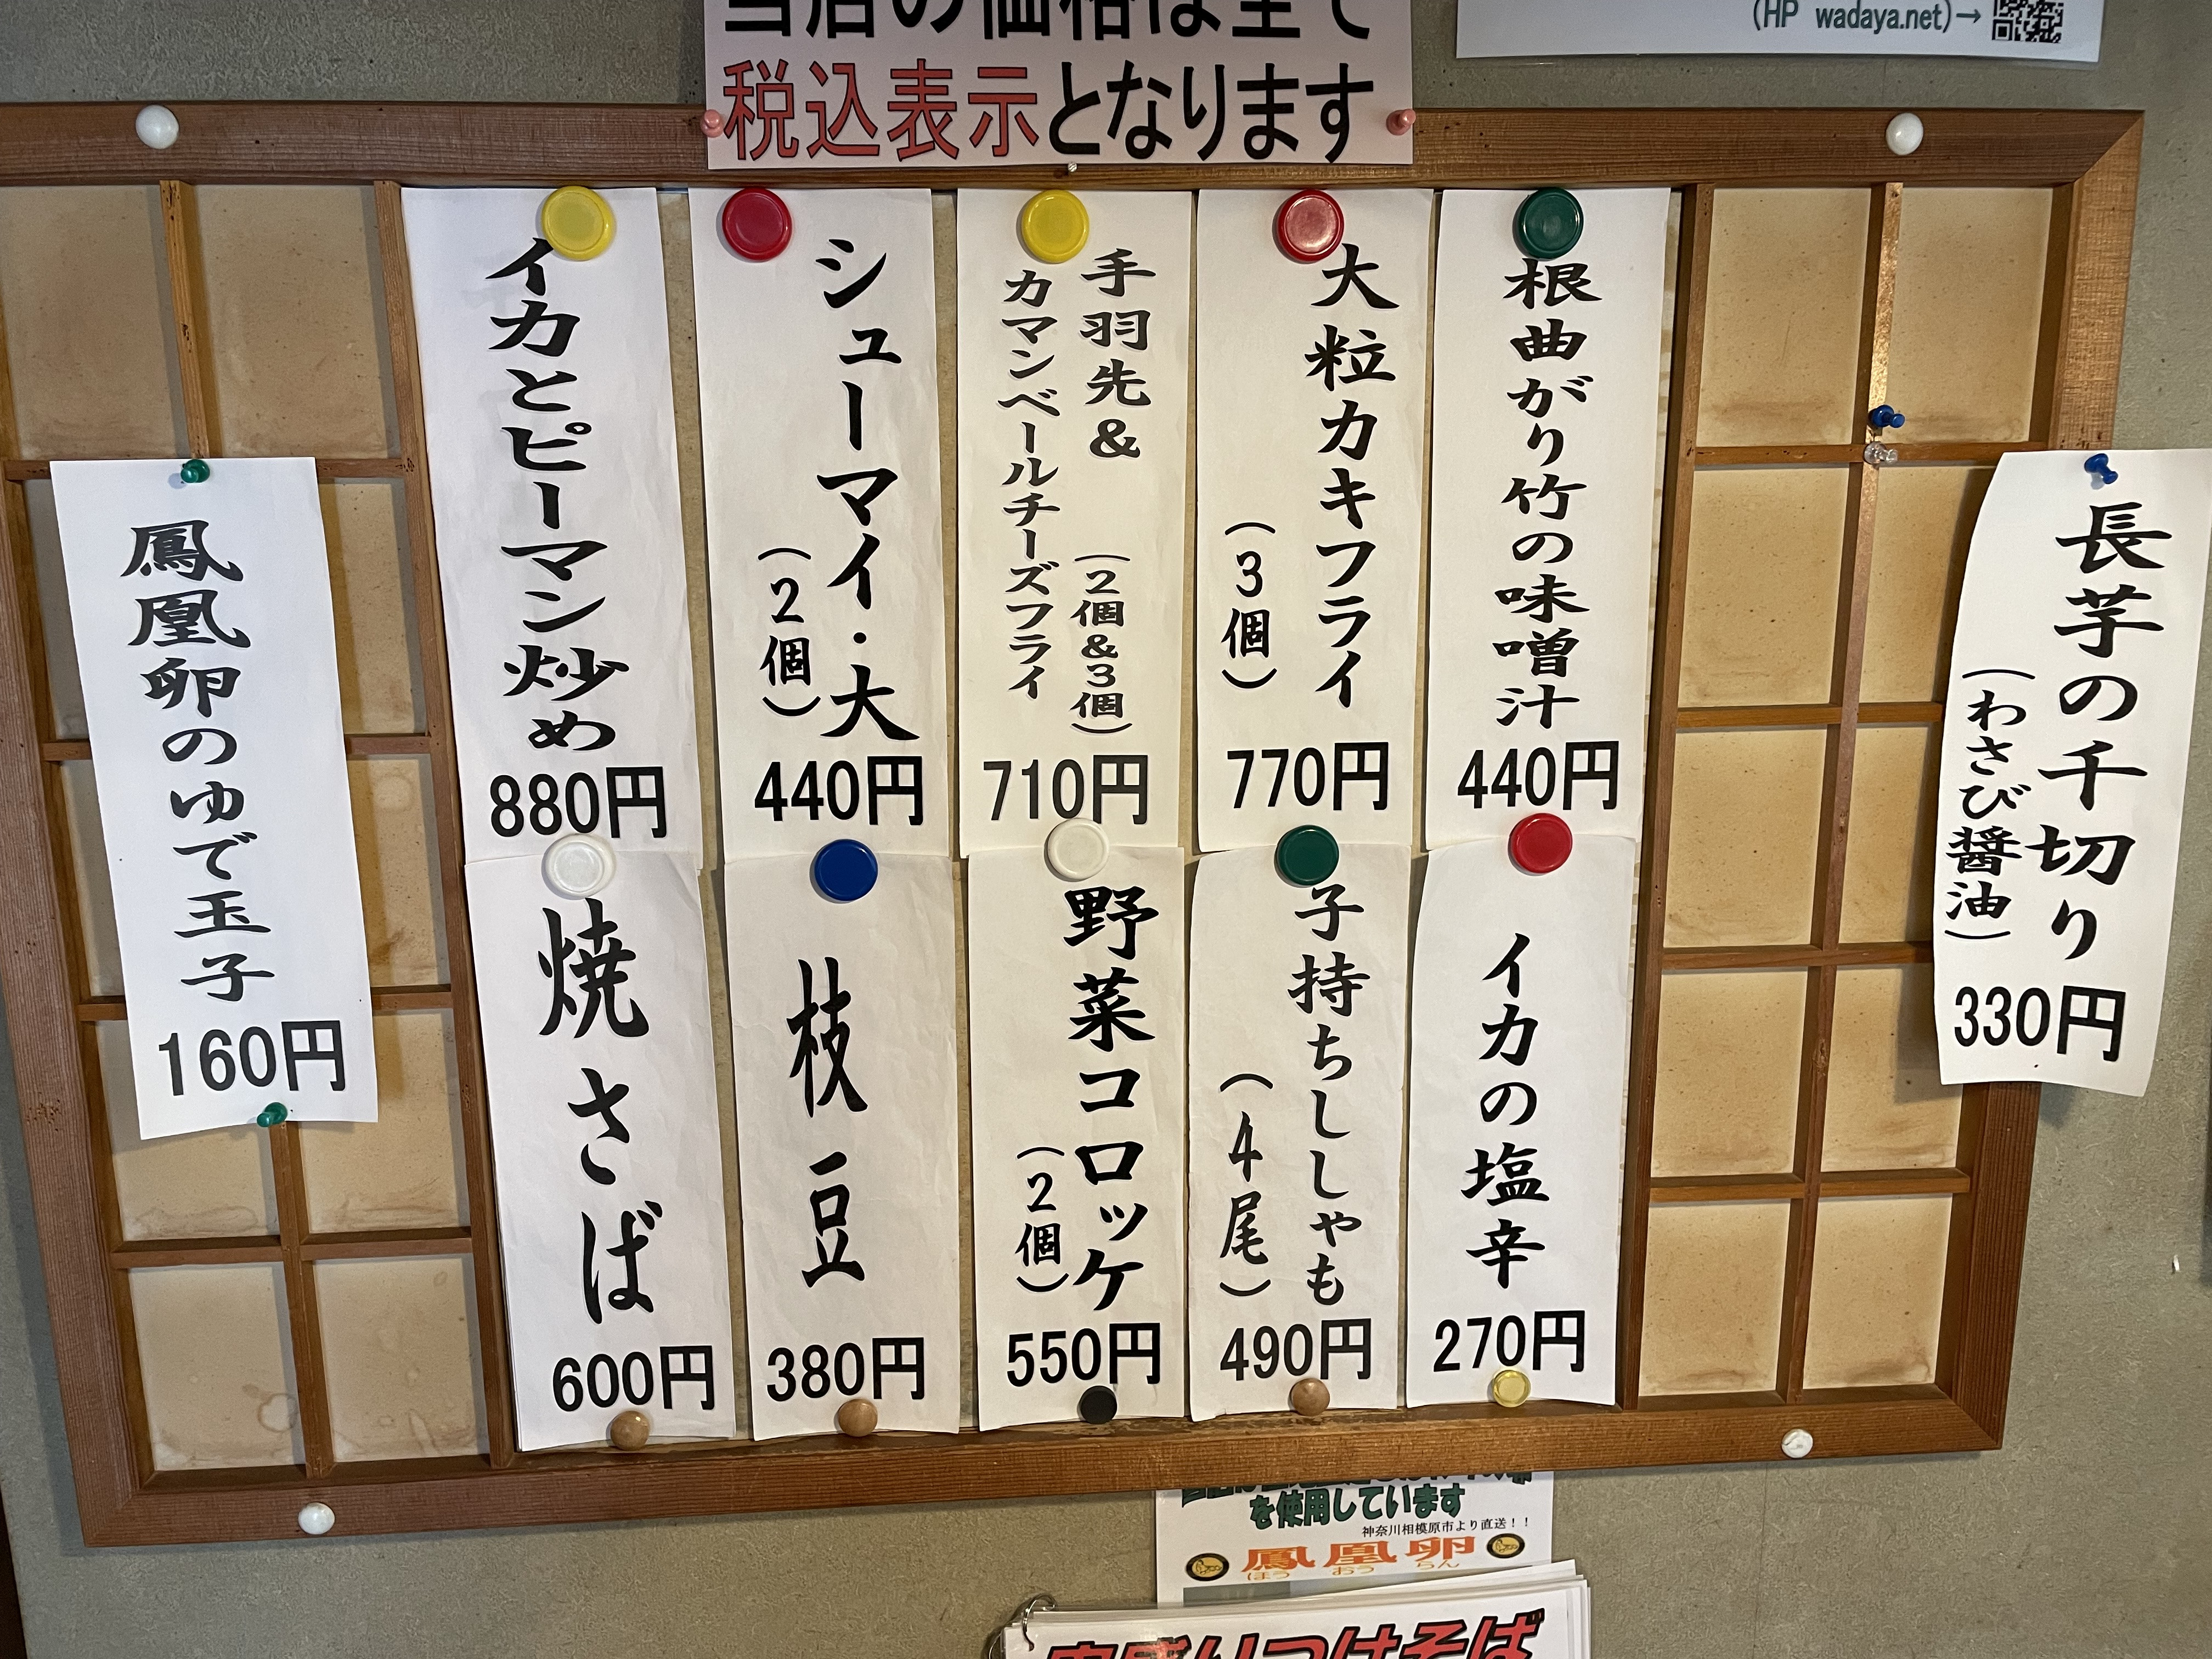 当店の価格は全て
税込表示となります
(HP wadaya.net)→
長芋の千切り
(わさび醤油)
330円
根曲がり竹の味噌汁
440円
大粒カキフライ
(3個)
770円
手羽先& (2個&3個)
カマンベールチーズフライ
710円
シューマイ・大
(2個)
440円
イカとピーマン炒め
880円
イカの塩辛
270円
子持ちししゃも
(4尾)
490円
野菜コロッケ
(2個)
550円
枝豆
380円
焼さば
600円
鳳凰卵のゆで玉子
160円
を使用しています
神奈川相模原市より直送!!
鳳凰卵
ほう おう らん